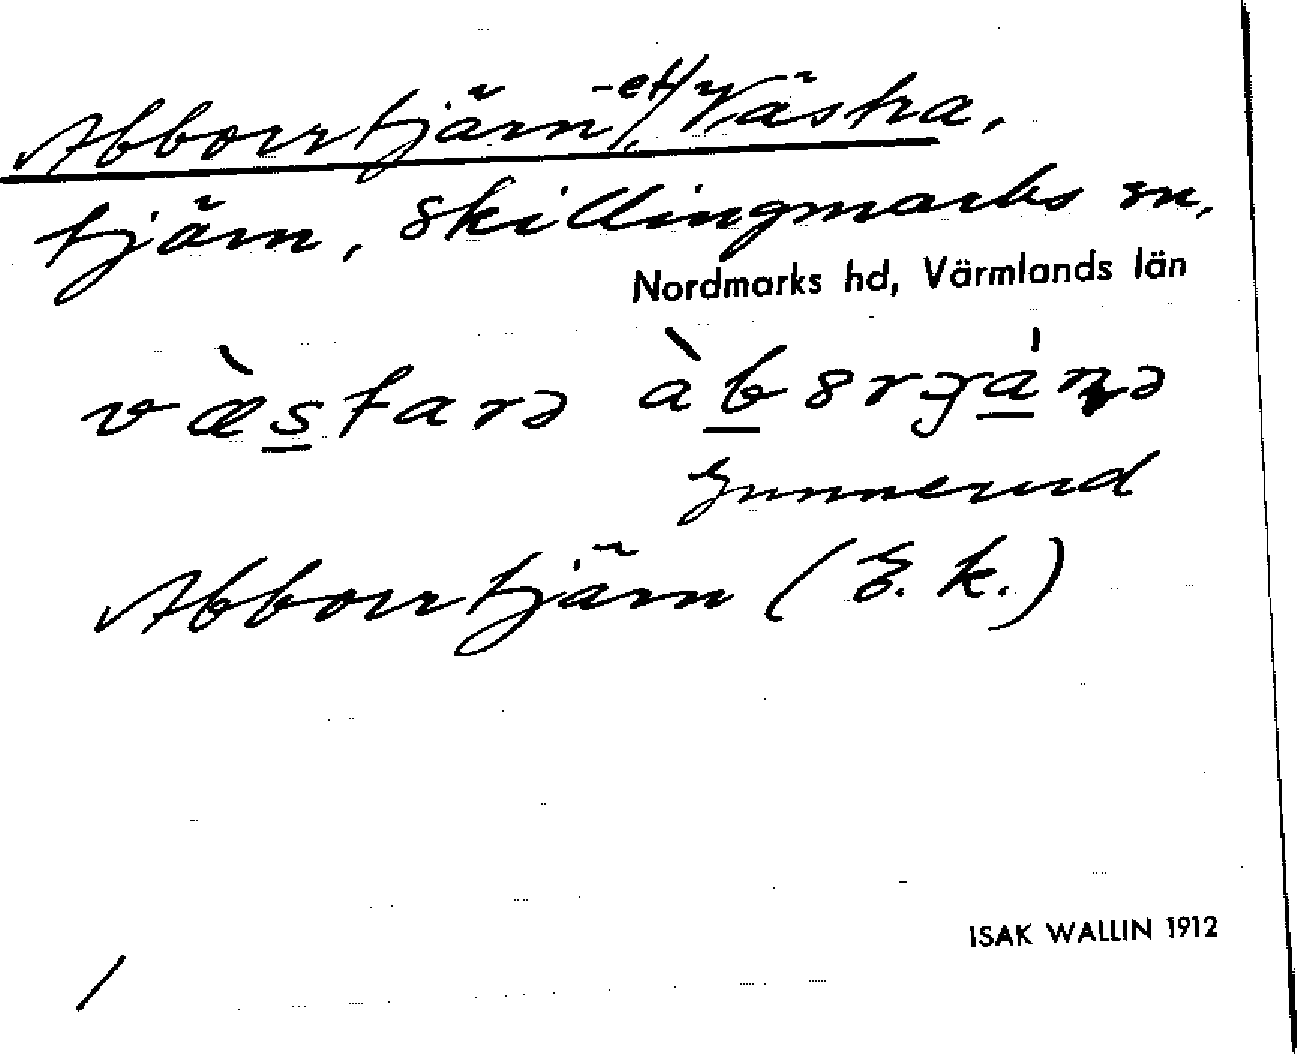 Abborrtjärn/-et/, Västra,
tjärn, Skillingmarks sn,
Nordmarks hd, Värmlands län
væ̀starə àbərjánə
Gunnerud
Abborrtjärn (E. k.)
ISAK WALLIN 1912
/